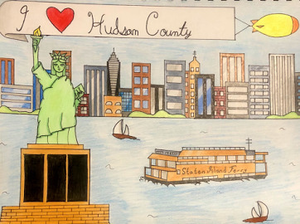 I ❤ Hudson County
Staten Island Ferry